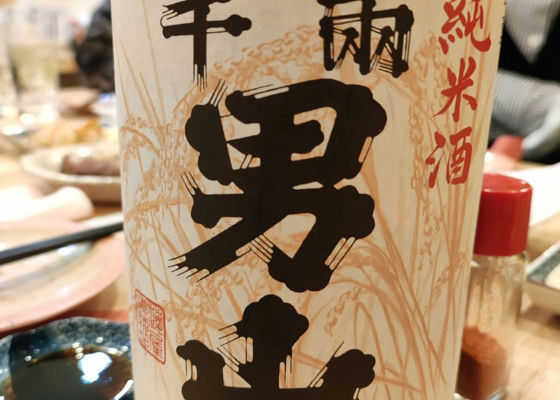 千兩
男
山
純米酒